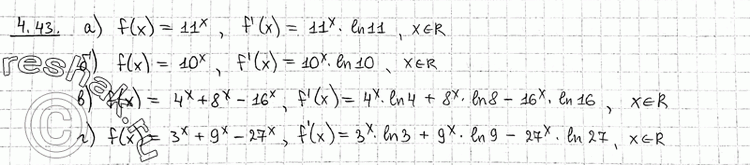 4.43. а) f(x) = 11ˣ, f'(x) = 11ˣ · ln 11, x∈R
б) f(x) = 10ˣ, f'(x) = 10ˣ · ln 10, x∈R
в) f(x) = 4ˣ + 8ˣ - 16ˣ, f'(x) = 4ˣ · ln 4 + 8ˣ · ln 8 - 16ˣ · ln 16, x∈R
г) f(x) = 3ˣ + 9ˣ - 27ˣ, f'(x) = 3ˣ · ln 3 + 9ˣ · ln 9 - 27ˣ · ln 27, x∈R
reshak.ru
©